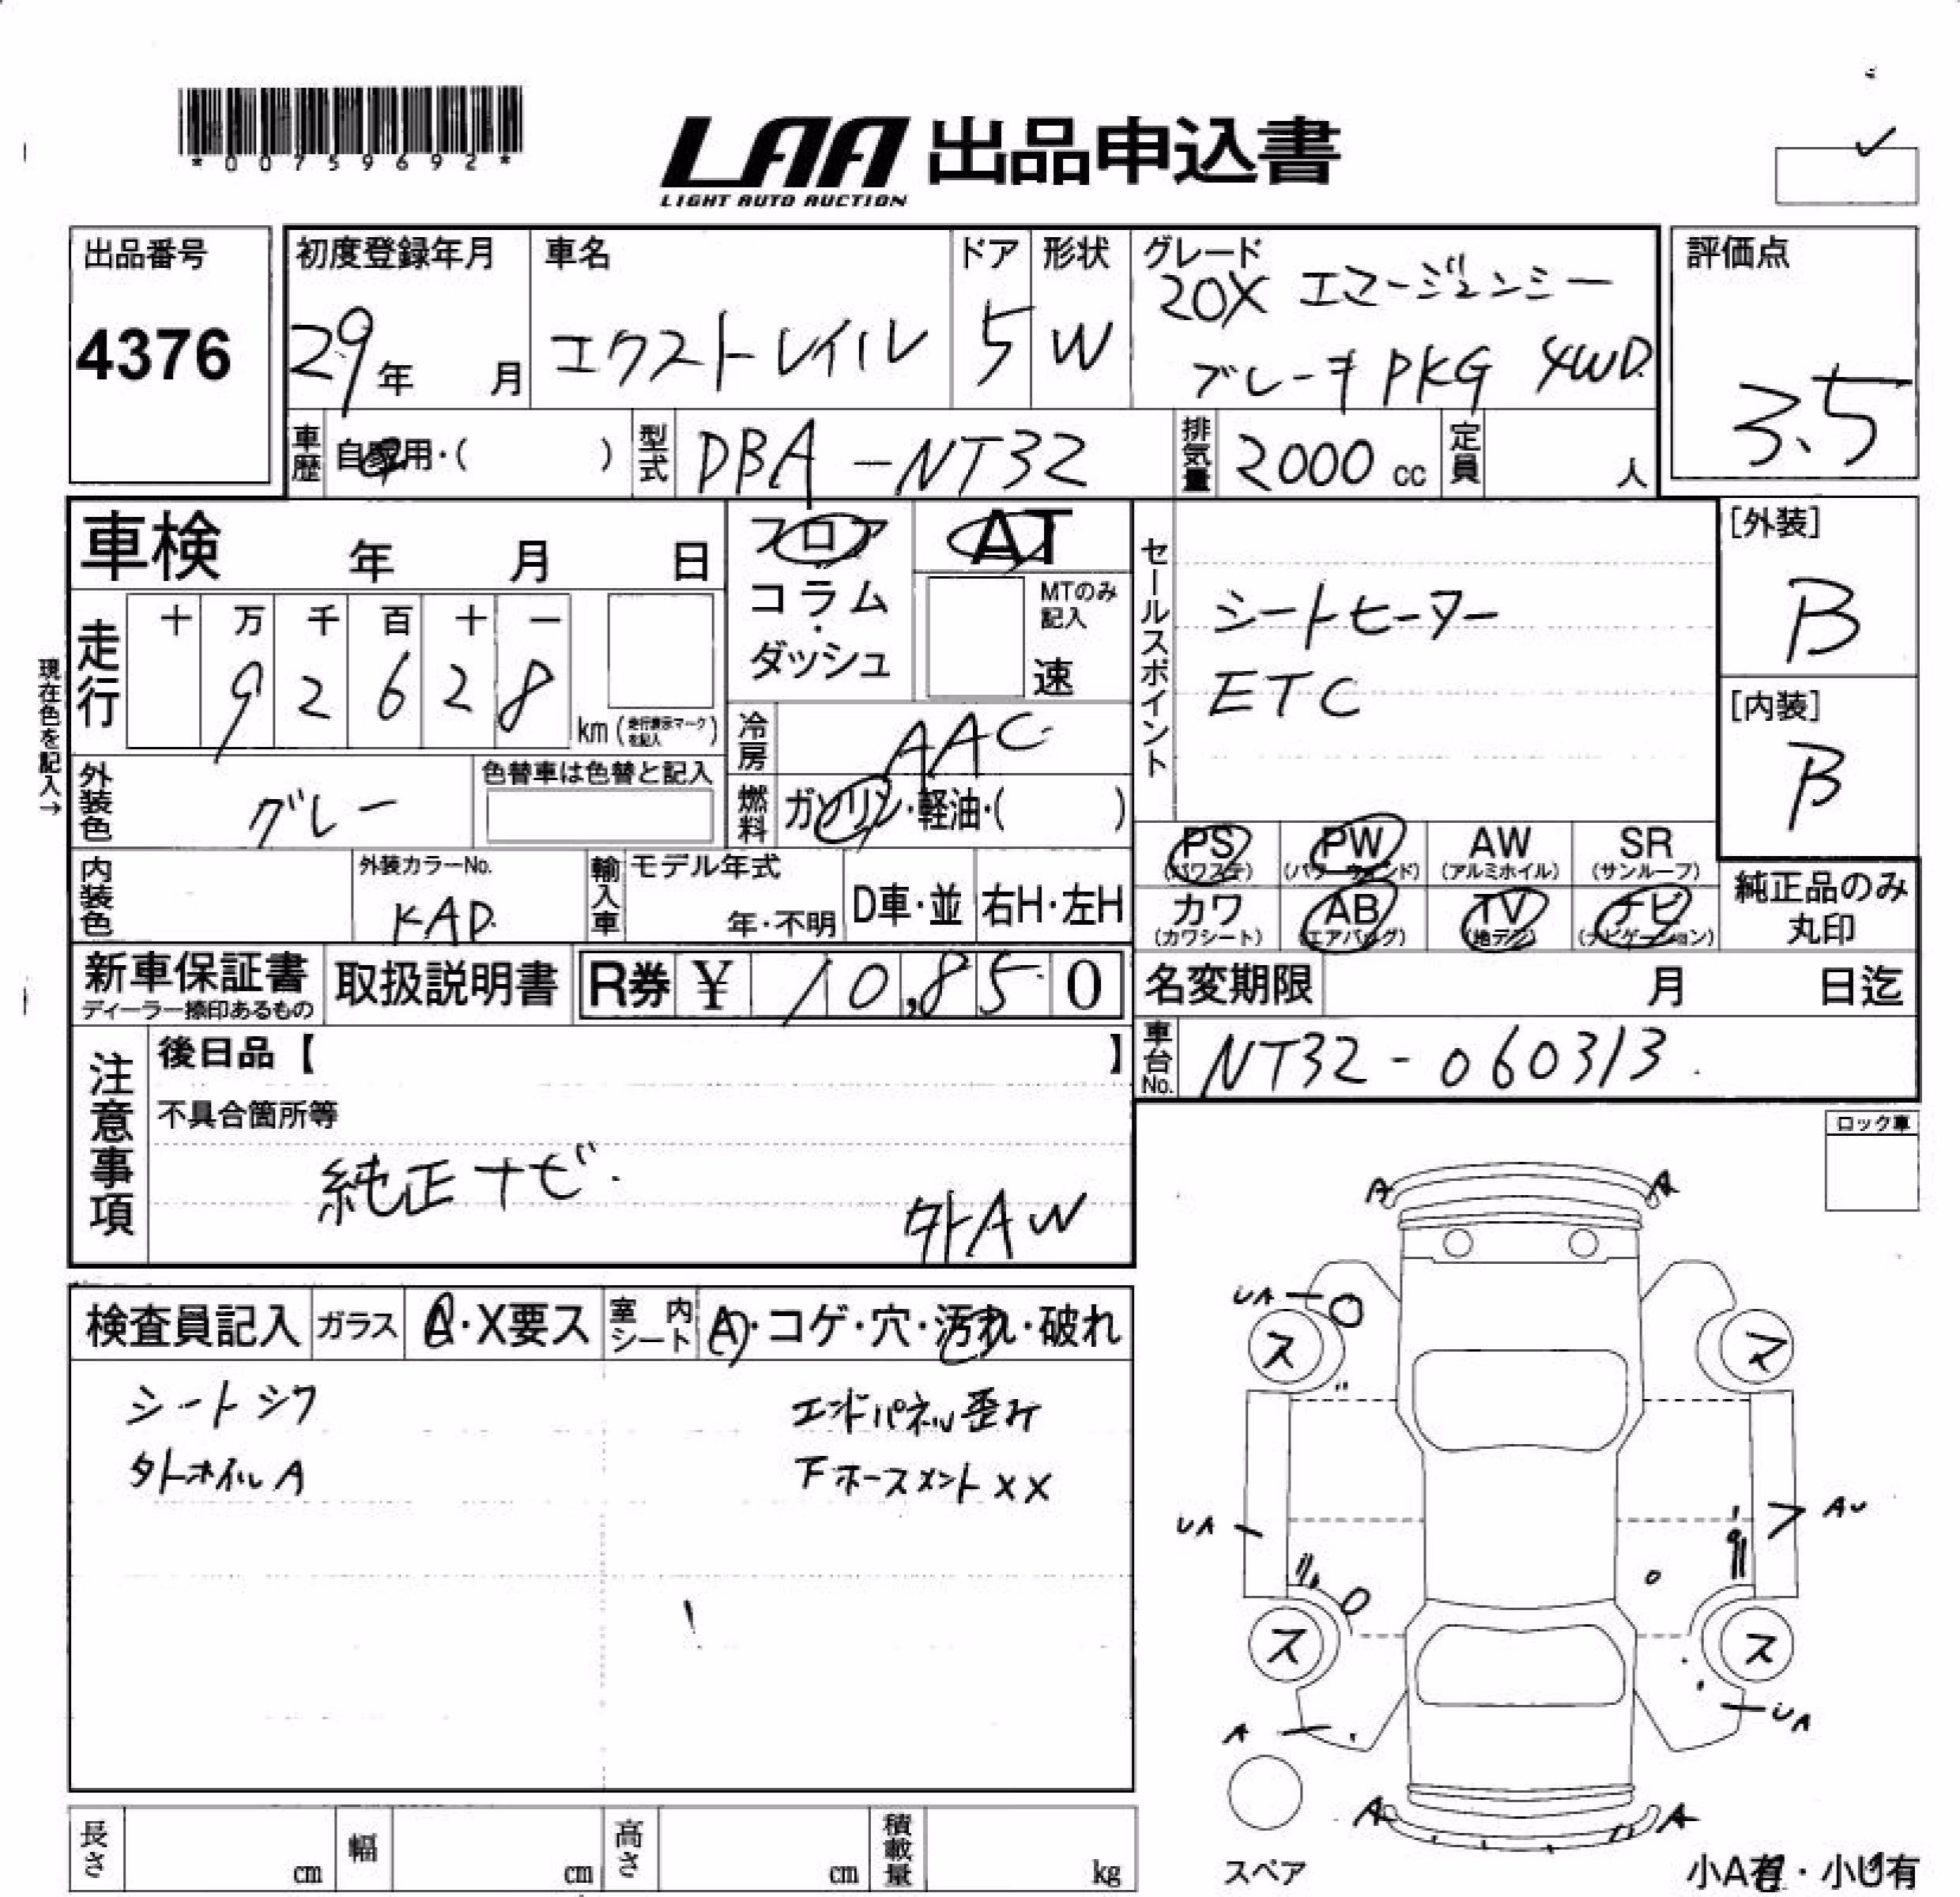 *00759692*
LAA 出品申込書
LIGHT AUTO AUCTION
出品番号
4376
初度登録年月
29年 月
車名
エクストレイル
ドア
5
形状
W
グレード
20X エマージェンシー
ブレーキPKG 4WD
評価点
3.5
車歴
自家用・( )
型式
DBA-NT32
排気量
2000 cc
定員
人
車検 年 月 日
フロア
コラム
・
ダッシュ
AT
MTのみ
記入
速
セールスポイント
シートヒーター
ETC
[外装]
B
[内装]
B
現在色を記入→
走行
十 万 千 百 十 一
9 2 6 2 8
km (走行表示マークを記入)
冷房
AAC
燃料
ガソリン・軽油・( )
外装色
グレー
色替車は色替と記入
内装色
外装カラーNo.
KAD
輸入車
モデル年式
年・不明
D車・並
右H・左H
PS
(パワステ)
PW
(パワーウインド)
AW
(アルミホイル)
SR
(サンルーフ)
カワ
(カワシート)
AB
(エアバッグ)
TV
(地デジ)
ナビ
(ナビゲーション)
純正品のみ
丸印
新車保証書
ディーラー捺印あるもの
取扱説明書
R券 ¥ 10,850
名変期限 月 日迄
車台No.
NT32-060313
注意事項
後日品【 】
不具合箇所等
純正ナビ
外AW
ロック車
検査員記入
ガラス
A・X要ス
室内シート
A・コゲ・穴・汚れ・破れ
シートシワ
外ホイルA
エンドパネル歪み
下ホースメント××
A A
UA
ス ス
UA
AU
ス ス
A
UA
A A
スペア
小A有・小U有
長さ cm
幅 cm
高さ cm
積載量 kg